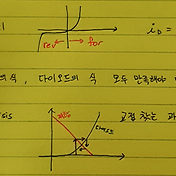 rev for i_D =
식, 다이오드의 식 모두 만족해야
sis
다이오드 교점 찾는 과